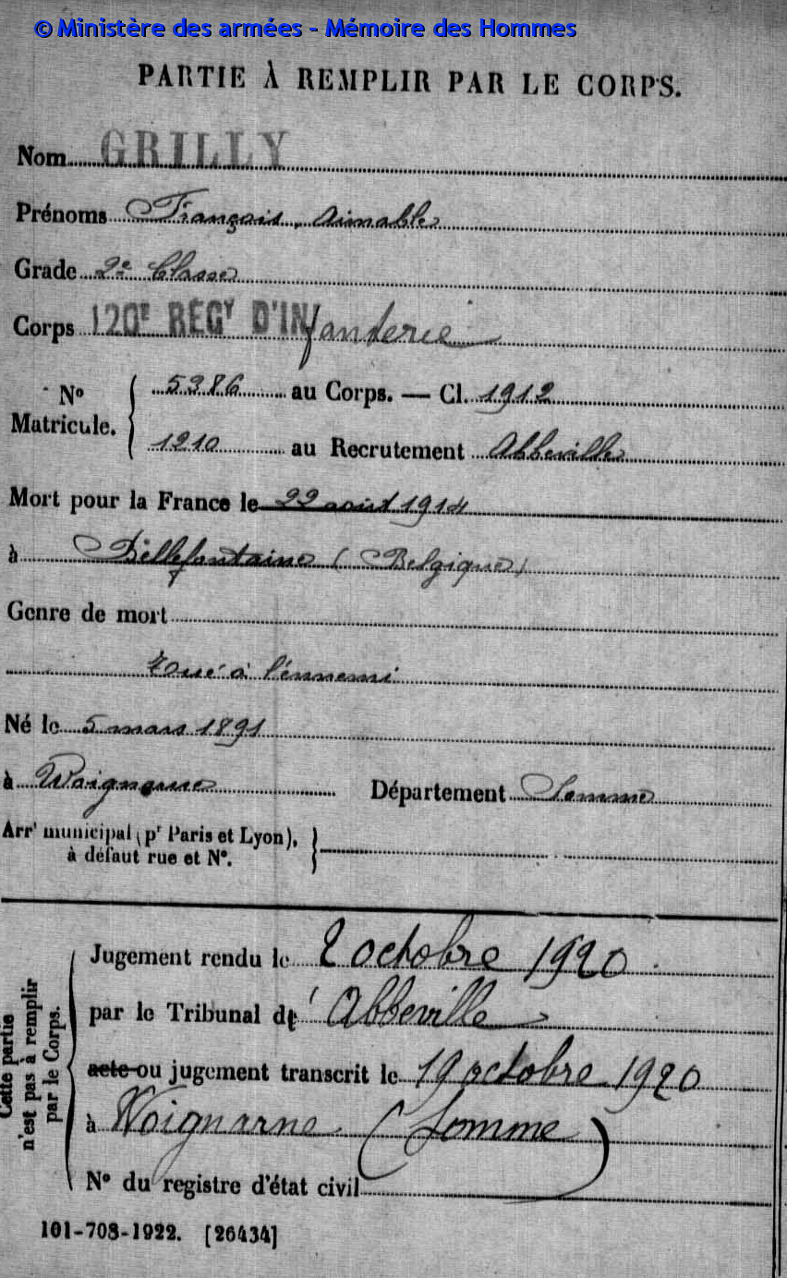 © Ministère des armées - Mémoire des Hommes
PARTIE À REMPLIR PAR LE CORPS.
Nom GRILLY
Prénoms François, Aimable
Grade 2e Classe
Corps 120E RÉGT D'INfanterie
No Matricule. 5386 au Corps. — Cl. 1912
1210 au Recrutement Abbeville
Mort pour la France le 22 août 1914
à Bellefontaine (Belgique)
Genre de mort
Tué à l'ennemi
Né le 5 mars 1891
à Département Somme
Arrt municipal (pr Paris et Lyon),
à défaut rue et No.
Cette partie
n'est pas à remplir
par le Corps.
Jugement rendu le 2 octobre 1920
par le Tribunal de l'Abbeville
acte ou jugement transcrit le 19 octobre 1920
à Woignarne (Somme)
No du registre d'état civil
101-708-1922. [26434]